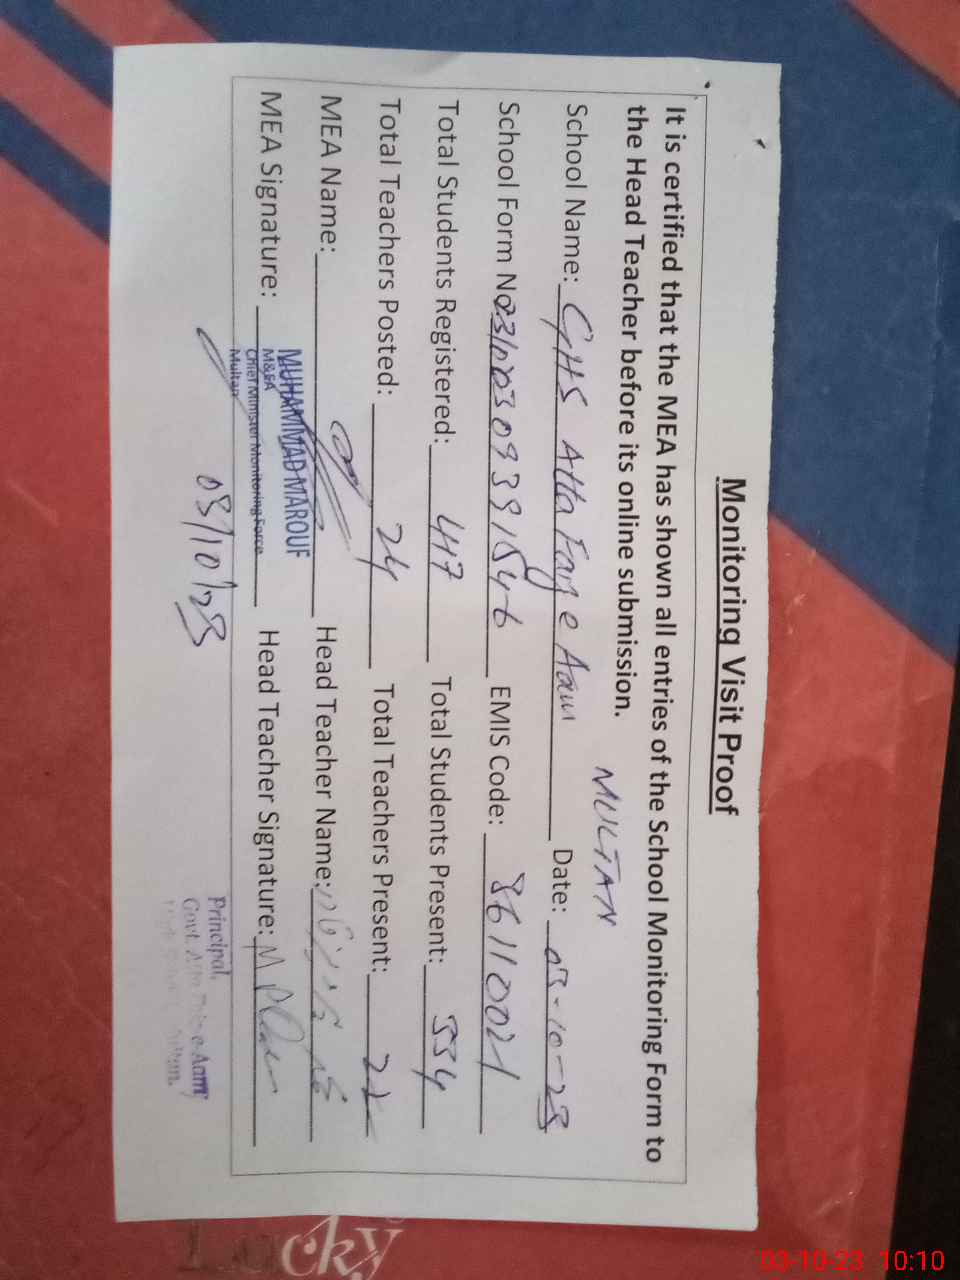 Monitoring Visit Proof
It is certified that the MEA has shown all entries of the School Monitoring Form to
the Head Teacher before its online submission.
MULTAN
School Name: GHS Atta Faiz e Aam Date: 03-10-23
School Form No 03100309391546 EMIS Code: 36110021
Total Students Registered: 417 Total Students Present: 334
Total Teachers Posted: 24 Total Teachers Present: 22
MEA Name: Head Teacher Name:
MUHAMMAD MAROUF
M&EA
Chief Minister Monitoring Force
Multan
MEA Signature: Head Teacher Signature:
03/10/23
Principal,
Govt. e-Aam
Multan.
Lucky
03-10-23 10:10